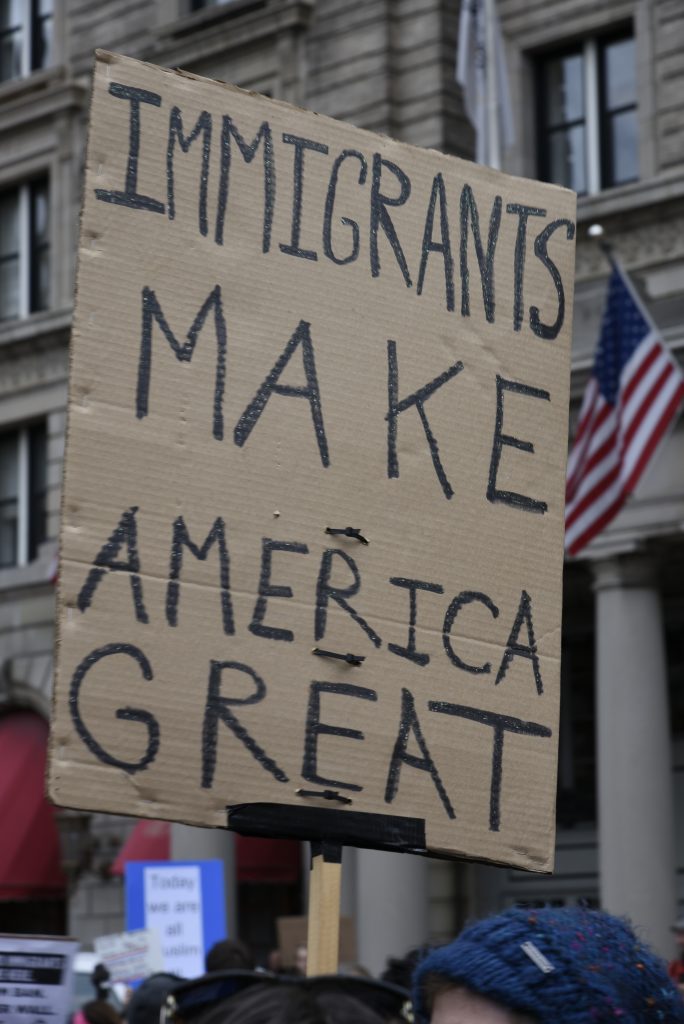 IMMIGRANTS
MAKE
AMERICA
GREAT
Today
we are
all